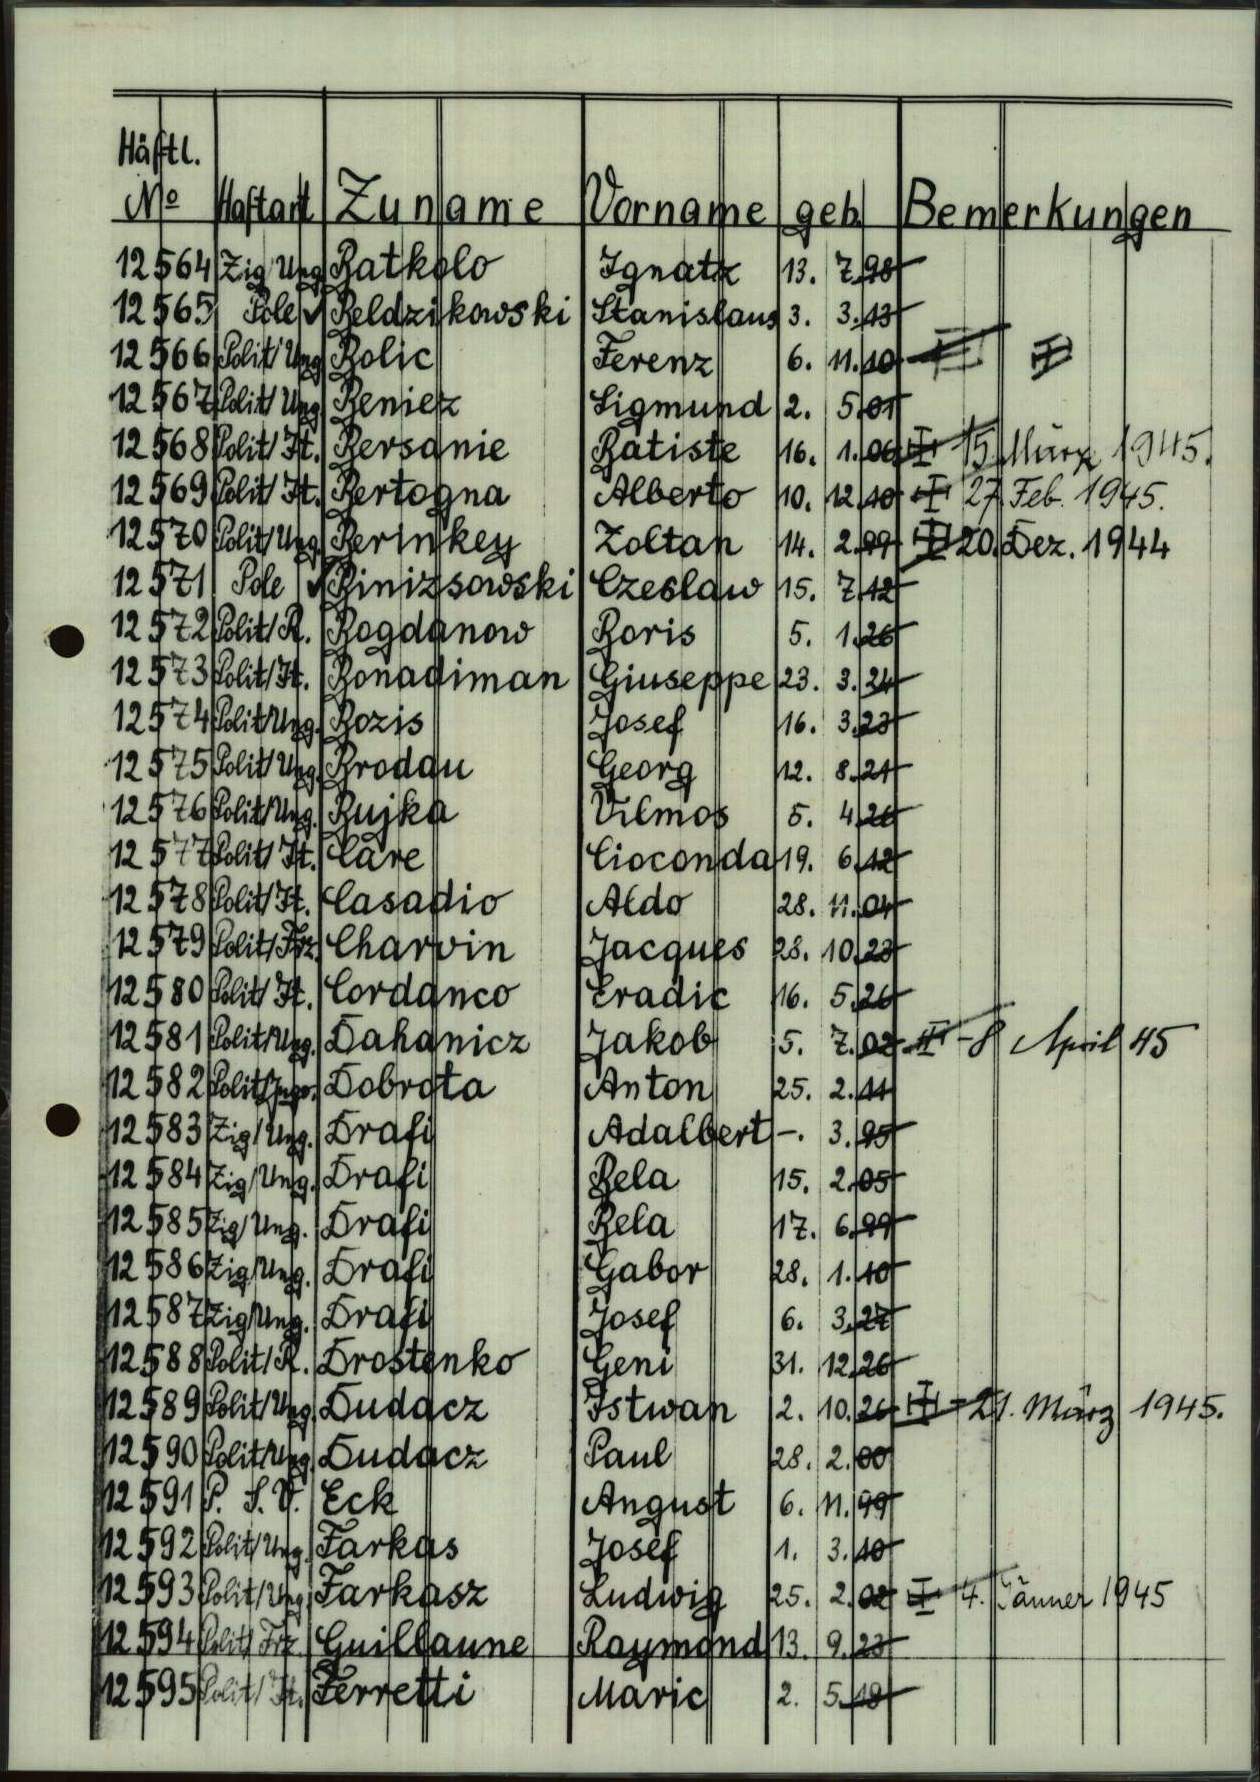 Häftl.
No Haftart Zuname Vorname geb. Bemerkungen
12564 Zig/Ung Batkolo Ignatz 13. 7.98
12565 Pole ✓ Beldzikowski Stanislaus 3. 3.13
12566 Polit/Ung Bolic Ferenz 6. 11.10
12567 Polit/Ung. Beniez Sigmund 2. 5.01
12568 Polit/It. Bersanie Batiste 16. 1.06 15. März 1945.
12569 Polit/It. Bertogna Alberto 10. 12.10 27. Feb. 1945.
12570 Polit/Ung. Berinkey Zoltan 14. 2.99 20. Dez. 1944
12571 Pole ✓ Binizsowski Czeslaw 15. 7.12
12572 Polit/R. Bogdanow Boris 5. 1.26
12573 Polit/It. Bonadiman Giuseppe 23. 3.24
12574 Polit/Ung. Bozis Josef 16. 3.23
12575 Polit/Ung. Brodau Georg 12. 8.21
12576 Polit/Ung. Bujka Vilmos 5. 4.26
12577 Polit/It. Care Cioconda 19. 6.12
12578 Polit/It. Casadio Aldo 28. 11.04
12579 Polit/Frz. Charvin Jacques 28. 10.23
12580 Polit/It. Cordanco Eradic 16. 5.26
12581 Polit/Ung. Dahanicz Jakob 5. 7.02 - 8 April 45
12582 Polit/Jugo. Dobrota Anton 25. 2.11
12583 Zig/Ung. Drafi Adalbert -. 3.95
12584 Zig/Ung. Drafi Bela 15. 2.05
12585 Zig/Ung. Drafi Bela 17. 6.99
12586 Zig/Ung. Drafi Gabor 28. 1.10
12587 Zig/Ung. Drafi Josef 6. 3.27
12588 Polit/R. Drostenko Geni 31. 12.26
12589 Polit/Ung. Dudacz Istwan 2. 10.26 - 21. März 1945.
12590 Polit/Ung. Dudacz Paul 28. 2.00
12591 P. S.V. Eck August 6. 11.99
12592 Polit/Ung. Farkas Josef 1. 3.10
12593 Polit/Ung. Farkasz Ludwig 25. 2.02 4. Jänner 1945
12594 Polit/Frz. Guillaune Raymond 13. 9.23
12595 Polit/It. Ferretti Maric 2. 5.19